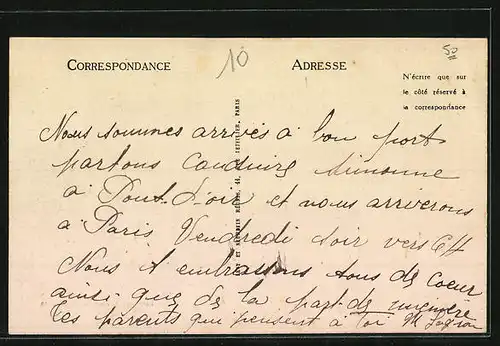 10
50
CORRESPONDANCE
ADRESSE
N'écrire que sur
le côté réservé à
la correspondance
Nous sommes arrivés à bon port
partons conduire Simonne
à Pont d'oie et nous arriverons
à Paris Vendredi soir vers 6H
Nous t'embrassons tous de coeur
ainsi que de la part de
tes parents qui pensent à toi M
PARIS